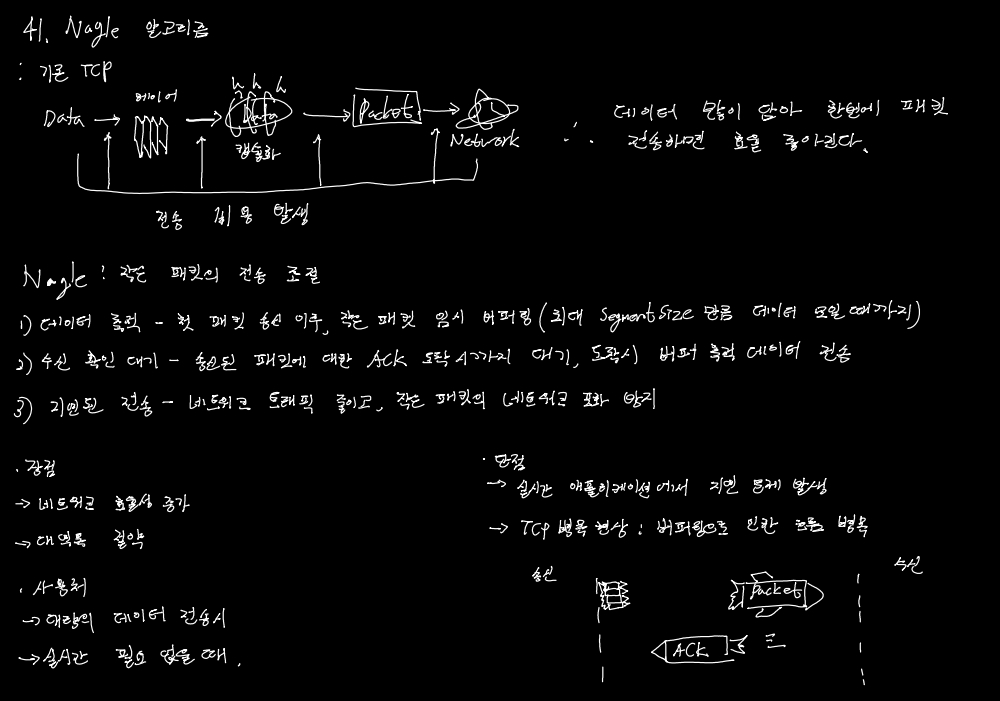 41. Nagle 알고리즘
: 기존 TCP
Data → 레이어 → h h h Data 캡슐화 → Packet → Network
전송 비용 발생
∴ 데이터 많이 담아 한번에 패킷
전송하면 효율 좋아진다.
Nagle : 작은 패킷의 전송 조절
1) 데이터 축적 - 첫 패킷 송신 이후, 작은 패킷 임시 버퍼링 (최대 Segment Size 만큼 데이터 모일 때까지)
2) 수신 확인 대기 - 송신된 패킷에 대한 ACK 도착시까지 대기, 도착시 버퍼 축적 데이터 전송
3) 지연된 전송 - 네트워크 트래픽 줄이고, 작은 패킷의 네트워크 포화 방지
· 장점
→ 네트워크 효율성 증가
→ 대역폭 절약
· 사용처
→ 대량의 데이터 전송시
→ 실시간 필요 없을 때.
· 단점
→ 실시간 애플리케이션에서 지연 문제 발생
→ TCP 병목현상 : 버퍼링으로 인한 흐름 병목
송신
수신
Packet
ACK